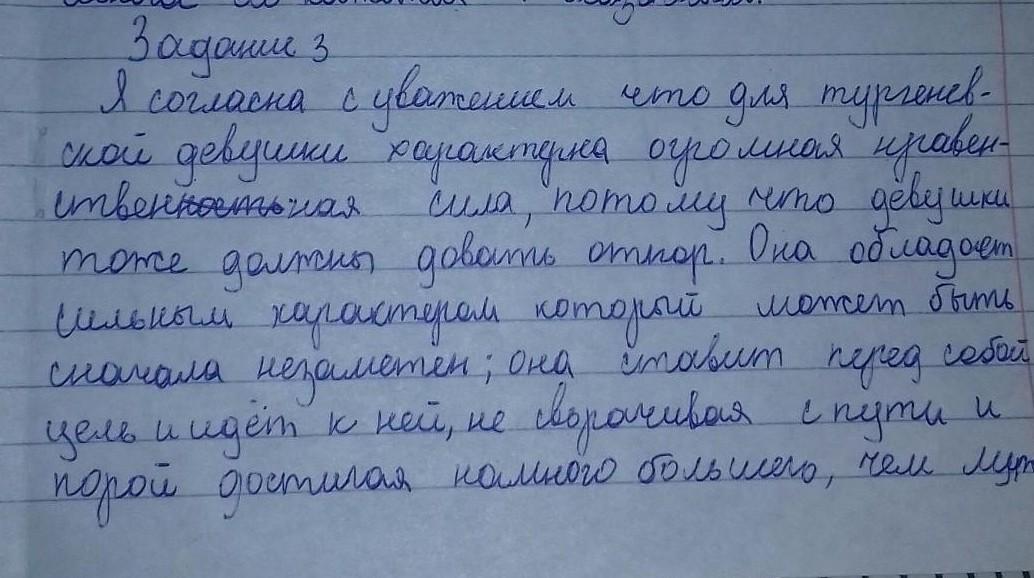 Задание 3
Я согласна с уважением что для тургенев-
ской девушки характерна огромная нравен-
ственная сила, потому что девушки
тоже должны довать отпор. Она обладает
сильным характером который может быть
сначала незаметен; она ставит перед собой
цель и идёт к ней, не сворачивая с пути и
порой достигая намного большего, чем